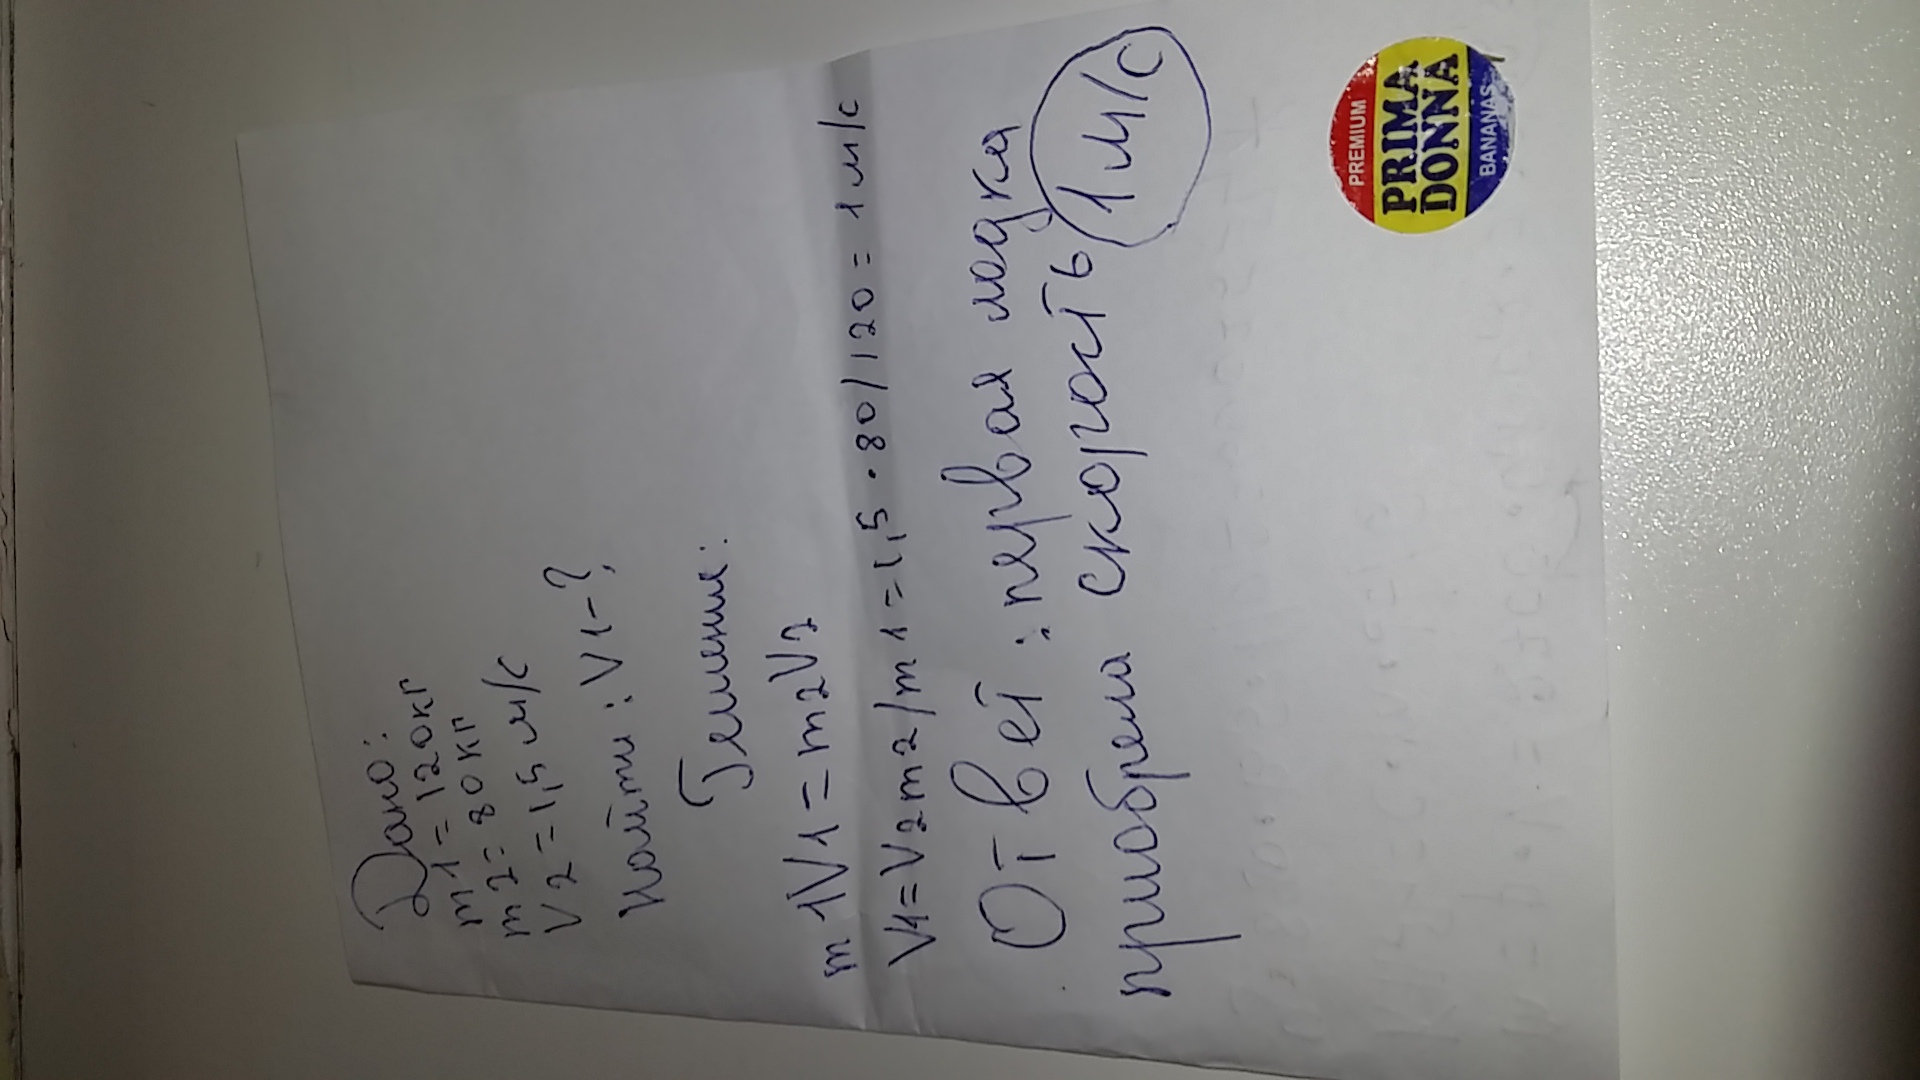 Дано:
m1=120кг
m2=80кг
V2=1,5 м/с
Найти: V1-?
Решение:
m1V1=m2V2
V1=V2m2/m1=1,5·80/120=1м/с
Ответ: первая лодка
приобрела скорость 1м/с
PREMIUM
PRIMA
DONNA
BANANAS